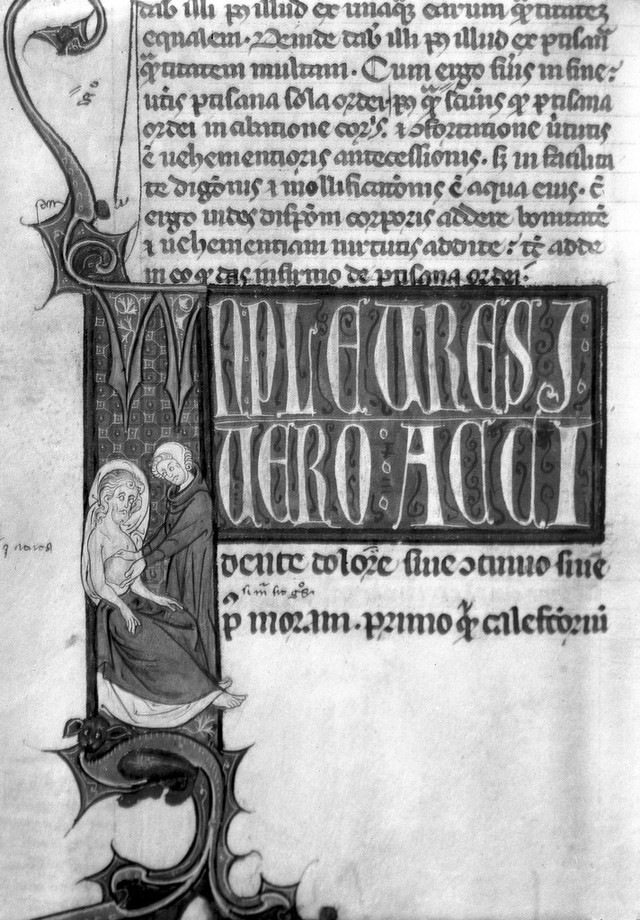 dab illi pꝰ illud ex unaq̄ꝫ earum q̄titatez
equalem. Deinde dab illi pꝰ illud ex ptisan̄
q̄titatem multam. Cum ergo sum9 in fine:
utis ptisana sola ordei pꝰ scim9 q̄ ptisana
ordei in cibatione cor'is. ⁊ ꝯfortatione ũtutis
ē uehementioris antecessionis. s; in facilita
te digōnis ⁊ mollificatōnis ē aqua eius. c̄
ergo uides dispōm corporis addere bonitatē
⁊ uehementiam uirtutis addite: tc̄ adde
in eo q̄ das infirmo de ptisana ordei.
IN PLEURESI
UERO ACCI
dente dolore siue ɔtinuo siue
ꝑ moram. primo q̄ calefc̄oriū